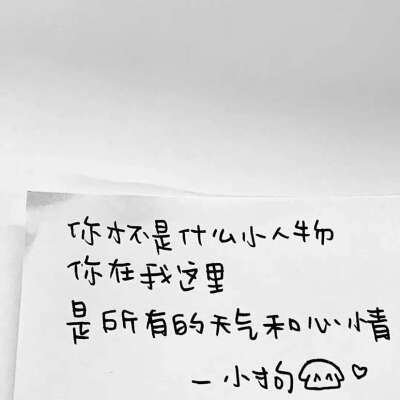 你才不是什么小人物
你在我这里
是所有的天气和心情
— 小狗